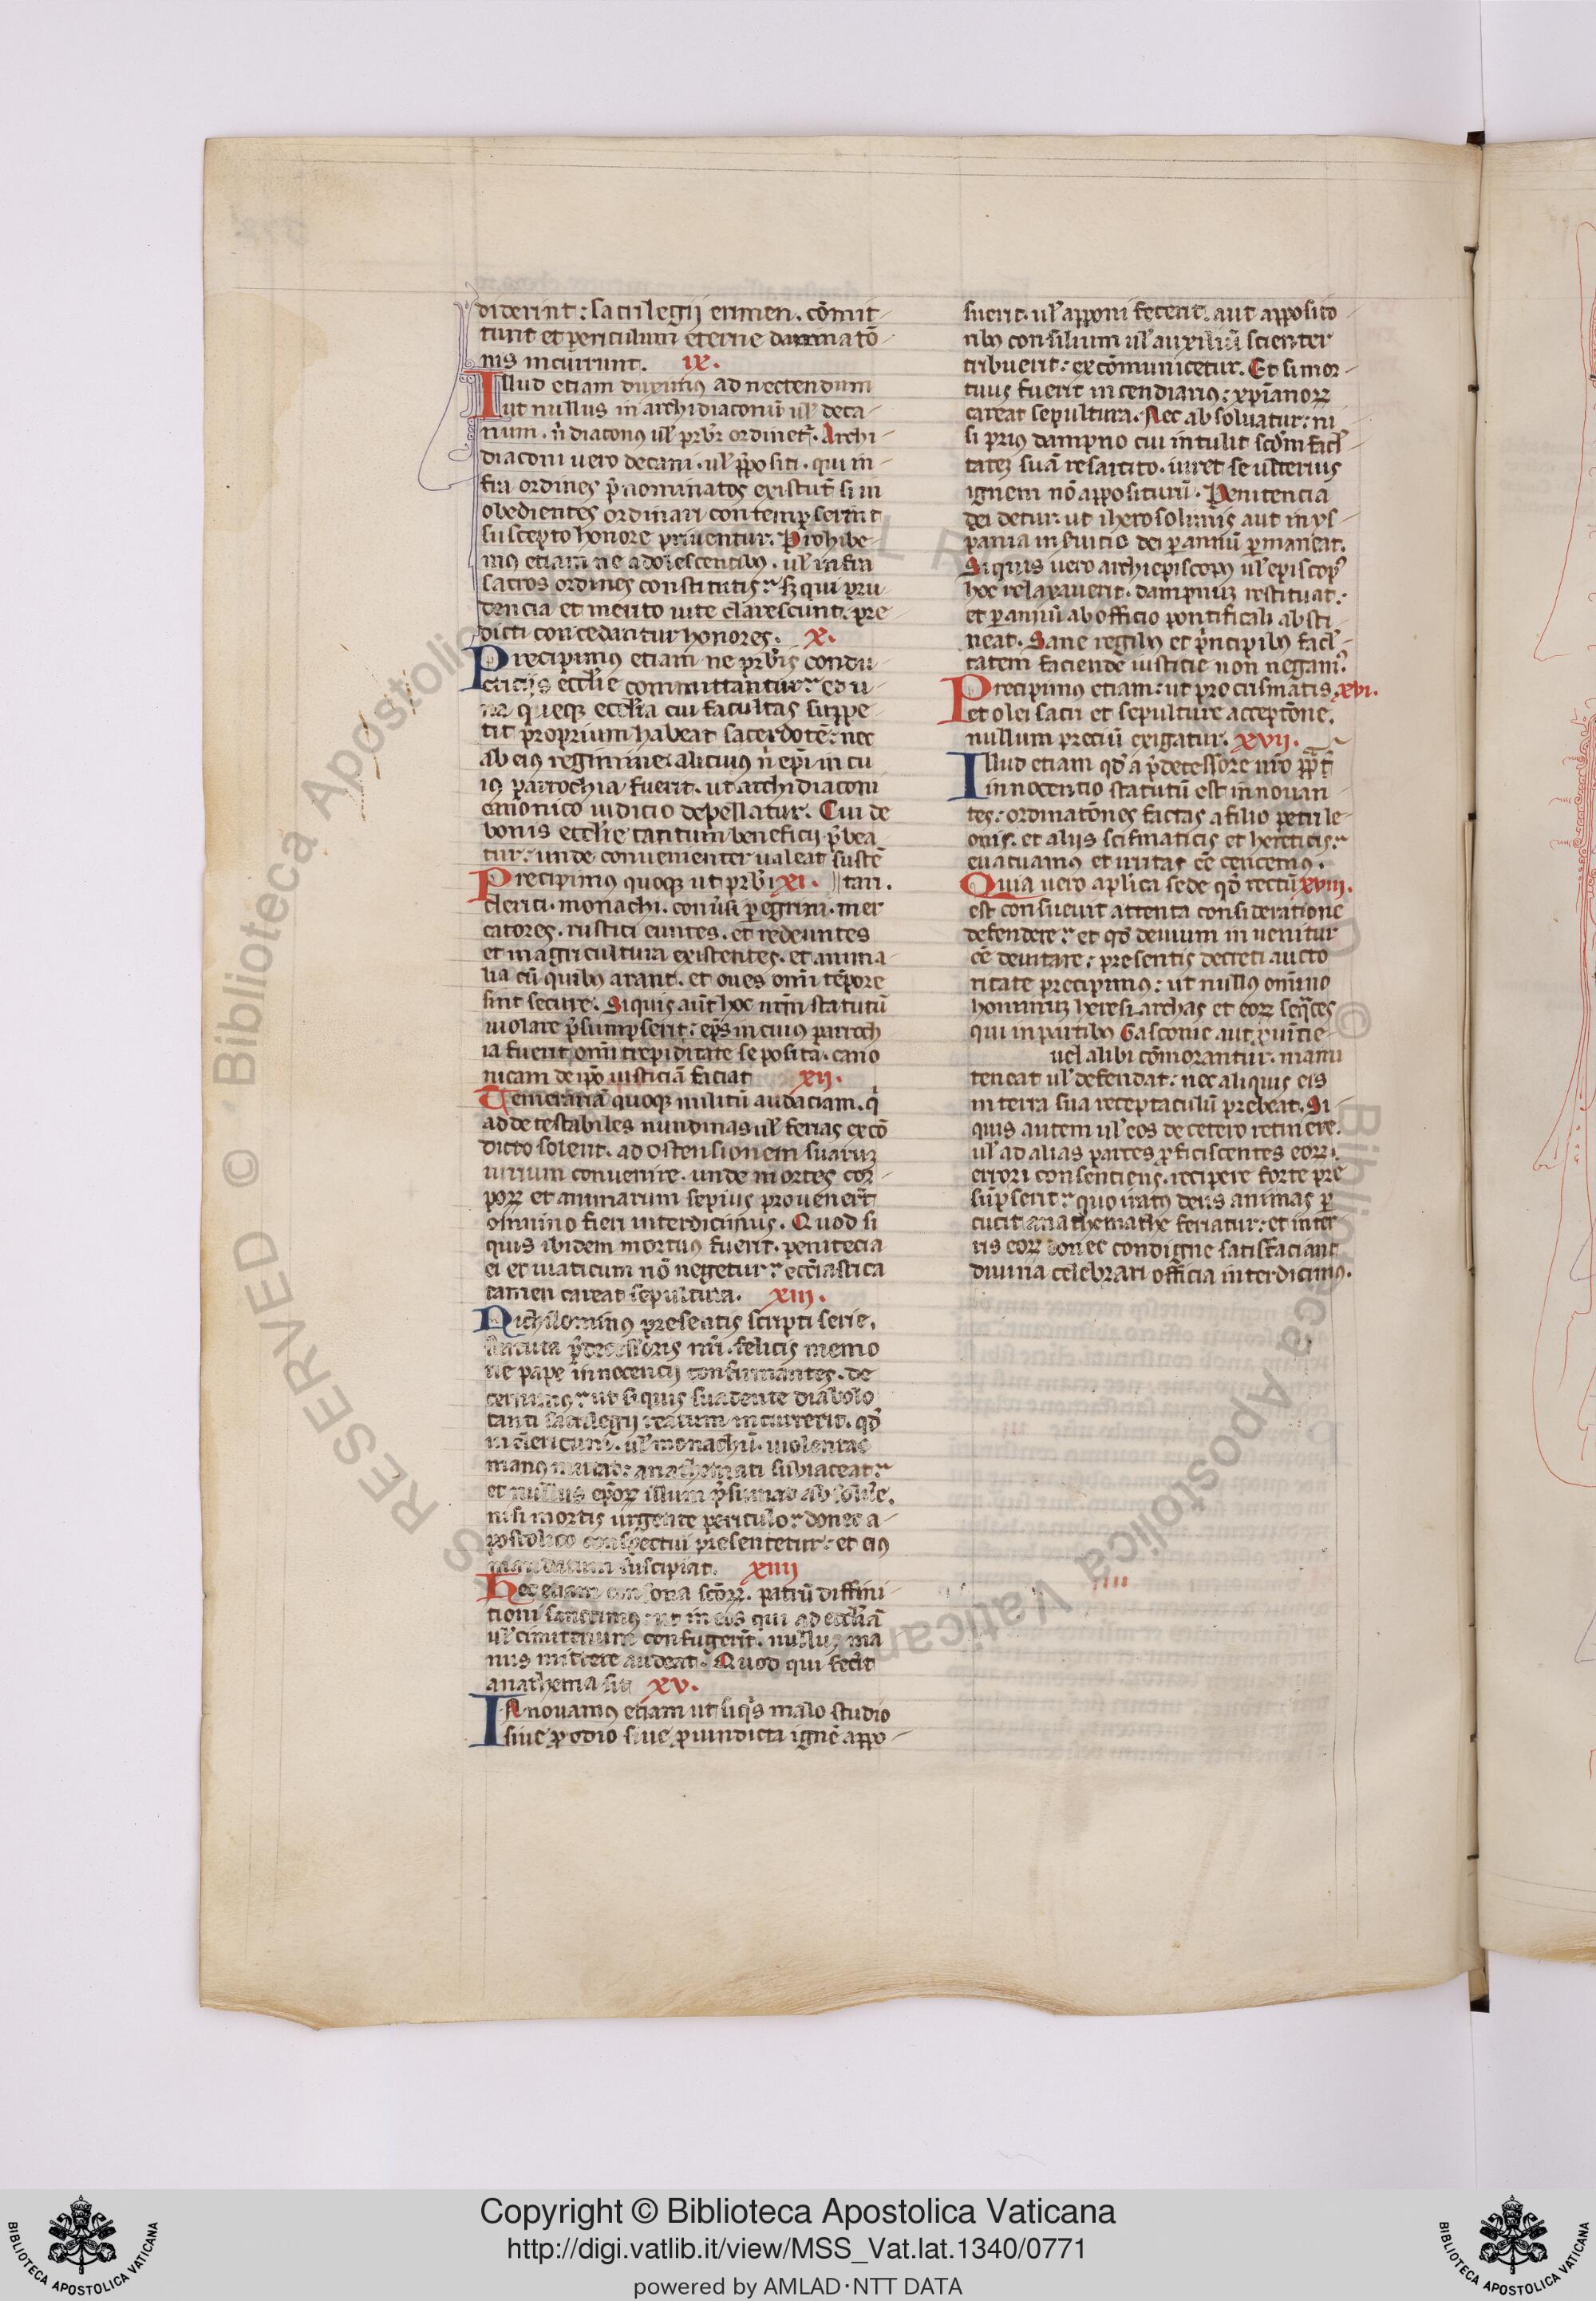 diderint: sacrilegij crimen. cōmit-
tunt et periculum eterne damnatō-
nis incurrunt. ix.
Illud etiam duximus ad nectendum
ut nullus in archidiaconū ul' deca-
num. n̄ diaconus ul' prb'r ordinet'. Archi-
diaconi uero decani. ul' p̄positi. qui in-
fra ordines p̄nominatos existūt si in
obedientes ordinari contempserint
suscepto honore priuentur. Prohibe-
mus etiam ne adolescentibus. ul' infra
sacros ordines constitutis: sꝫ qui pru-
dencia et merito uite clarescunt. pre-
dicti concedantur honores. x.
Precipimus etiam ne prb'ris condu-
cticijs eccl'ie committantur: ed u-
na queqꝫ eccl'ia cui facultas suppe-
tit proprium habeat sacerdotē: nec
ab eius regimine alicuius n̄ ep̄i in cu
ius parrochia fuerit. ut archidiaconi
canonico iudicio depellatur. Cui de
bonis eccl'ie tantum beneficij p̄bea
tur: unde conuenienter ualeat sustē
Precipimus quoqꝫ ut prb'ri xi. tari.
clerici. monachi. conu'si peregrini. mer
catores. rustici euntes. et redeuntes
et in agricultura existentes. et anima
lia cū quibus arant. et oues omī tēpore
sint secure. Siquis aūt hoc nrm̄ statutū
uiolare p̄sumpserit: ep̄s in cuius parroch
ia fuerit omī trepiditate seposita. cano
nicam de ip̄o iusticiā faciat xii.
Temerariā quoqꝫ militū audaciam. q'
ad detestabiles nundinas ul' ferias ex cō
dicto solent. ad ostensionem suarūꝫ
uirium conuenire. unde mortes cor-
porꝝ et animarum sepius prouenerūt
omnino fieri interdicimus. Quod si
quis ibidem mortuus fuerit. penitecia
ei et uiaticum nō negetur: eccl'iastica
tamen careat sepultura. xiii.
Nichilominus presentis scripti serie.
statuta p̄decessoris nr̄i. felicis memo
rie pape innocencij confirmantes. de
cernimus: ut si quis suadente diabolo
tanti sacrilegij reatum incurrerit. qd'
in clericum. ul' monachū. uiolentas
manus miserit: anathemati subiaceat:
et nullus ep̄orꝝ illum p̄sumat absolu'e.
nisi mortis urgente periculo: donec a-
postolico conspectui presentetur: et eius
mandatum suscipiat. xiiii
Hec etiam consona sc̄orꝝ. patrū diffini-
tioni sanctimus: ut in eos qui ad eccl'iā
ul' cimiterium confugerīt. nullus ma
nus mittere audeat. Quod qui fecit
anathema sit xv.
Innouamus etiam ut siq's malo studio
siue ꝑ odio siue ꝑ uindicta ignē appo-
suerit. ul' apponi fecerit. aut apposito-
ribus consilium ul' auxiliū scienter
tribuerit: excōmunicetur. Et si mor-
tuus fuerit incendiarius: xp̄ianorꝝ
careat sepultura. Nec absoluatur: ni
si prius dampno cui intulit scd'm facl'
tateꝫ suā resarcito. iuret se ulterius
ignem nō appositurū. Penitencia
dei detur. ut iherosolimis aut in ys-
pania in s'uitio dei p annū pmaneat.
Siquis uero archiepiscopus ul' episcop'
hoc relaxauerit. dampnuꝫ restituat:
et p annū ab officio pontificali absti-
neat. Sane regibus et p'ncipibus facl'-
tatem faciende iusticie non negam'.
Precipimus etiam: ut pro crismatis xvi.
et olei sacri et sepulture acceptōne.
nullum preciū exigatur. xvii.
Illud etiam qd' a p̄decessore nr̄o pp
innocentio statutū est innouan-
tes: ordinatōnes factas a filio petri le-
onis. et alijs scismaticis et hereticis:
euacuamus et irritas eē cencemus.
Quia uero apl'ica sede qd' rectū xviii.
est consueuit attenta consideratione
defendere: et qd' deuium inuenitur
eē deuitare: presentis decreti aucto
ritate precipimus: ut nullus omīno
hominuꝫ heresiarchas et eorꝝ seq̄ces
qui in partibus Gasconie aut puīcie-
uel alibi cōmorantur. manu
teneat ul' defendat: nec aliquis eis
in terra sua receptaculū prebeat. Si-
quis autem ul' eos de cetero retinere.
ul' ad alias partes ꝓficiscentes eorꝝ.
errori consenciens. recipere forte pre
sūpserit: quo iratus deus animas p
cucit anathemathe feriatur: et in ter
ris eorꝝ donec condigne satisfaciant
diuina celebrari officia interdicimus.
© Biblioteca Apostolica Vaticana
RESERVED
Copyright © Biblioteca Apostolica Vaticana
http://digi.vatlib.it/view/MSS_Vat.lat.1340/0771
powered by AMLAD·NTT DATA
BIBLIOTECA APOSTOLICA VATICANA
BIBLIOTECA APOSTOLICA VATICANA